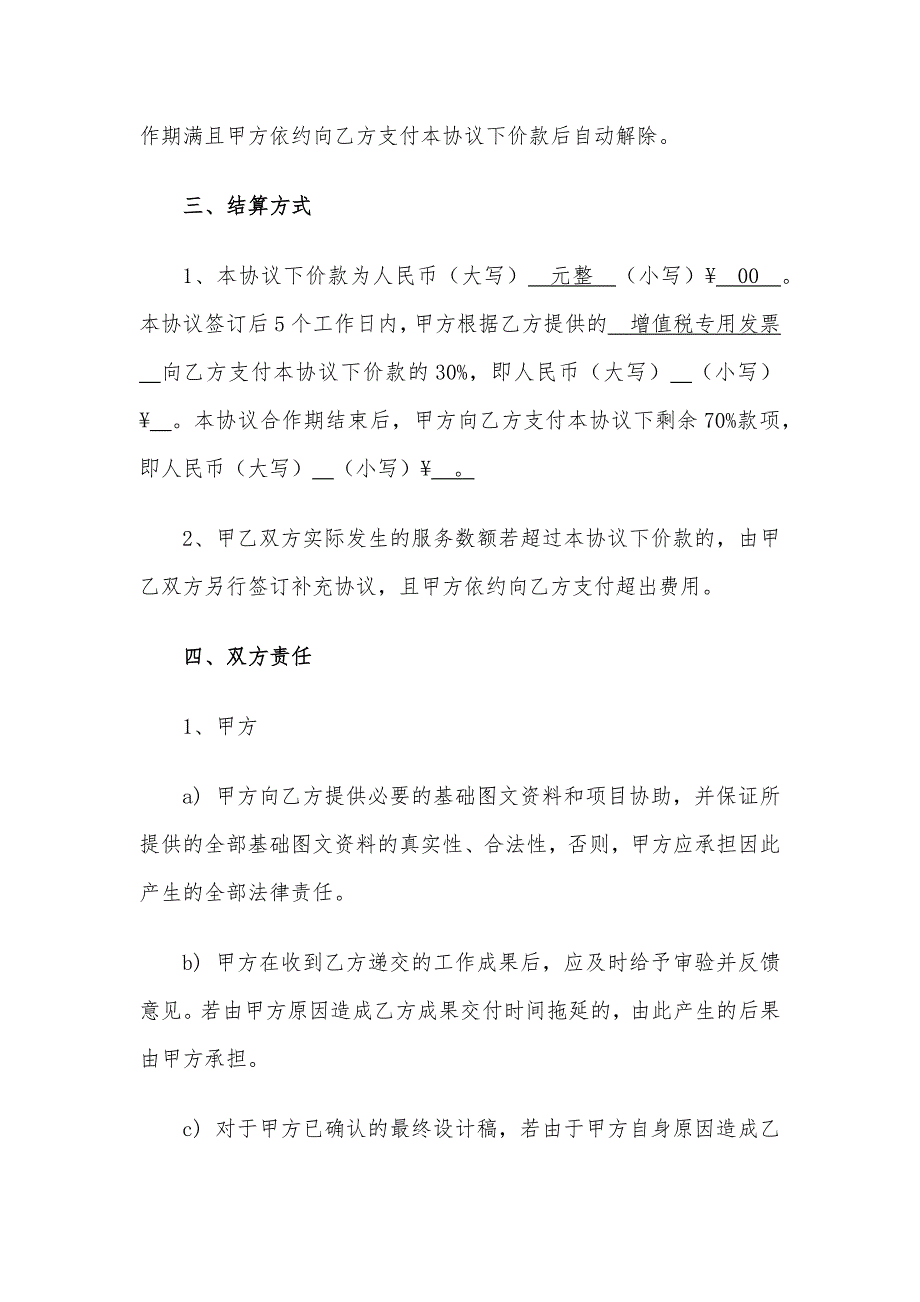 作期满且甲方依约向乙方支付本协议下价款后自动解除。
三、结算方式
1、本协议下价款为人民币（大写）__元整__（小写）¥__00__。
本协议签订后5个工作日内，甲方根据乙方提供的__增值税专用发票
__向乙方支付本协议下价款的30%，即人民币（大写）__（小写）
¥__。本协议合作期结束后，甲方向乙方支付本协议下剩余70%款项，
即人民币（大写）__（小写）¥__。
2、甲乙双方实际发生的服务数额若超过本协议下价款的，由甲
乙双方另行签订补充协议，且甲方依约向乙方支付超出费用。
四、双方责任
1、甲方
a) 甲方向乙方提供必要的基础图文资料和项目协助，并保证所
提供的全部基础图文资料的真实性、合法性，否则，甲方应承担因此
产生的全部法律责任。
b) 甲方在收到乙方递交的工作成果后，应及时给予审验并反馈
意见。若由甲方原因造成乙方成果交付时间拖延的，由此产生的后果
由甲方承担。
c) 对于甲方已确认的最终设计稿，若由于甲方自身原因造成乙